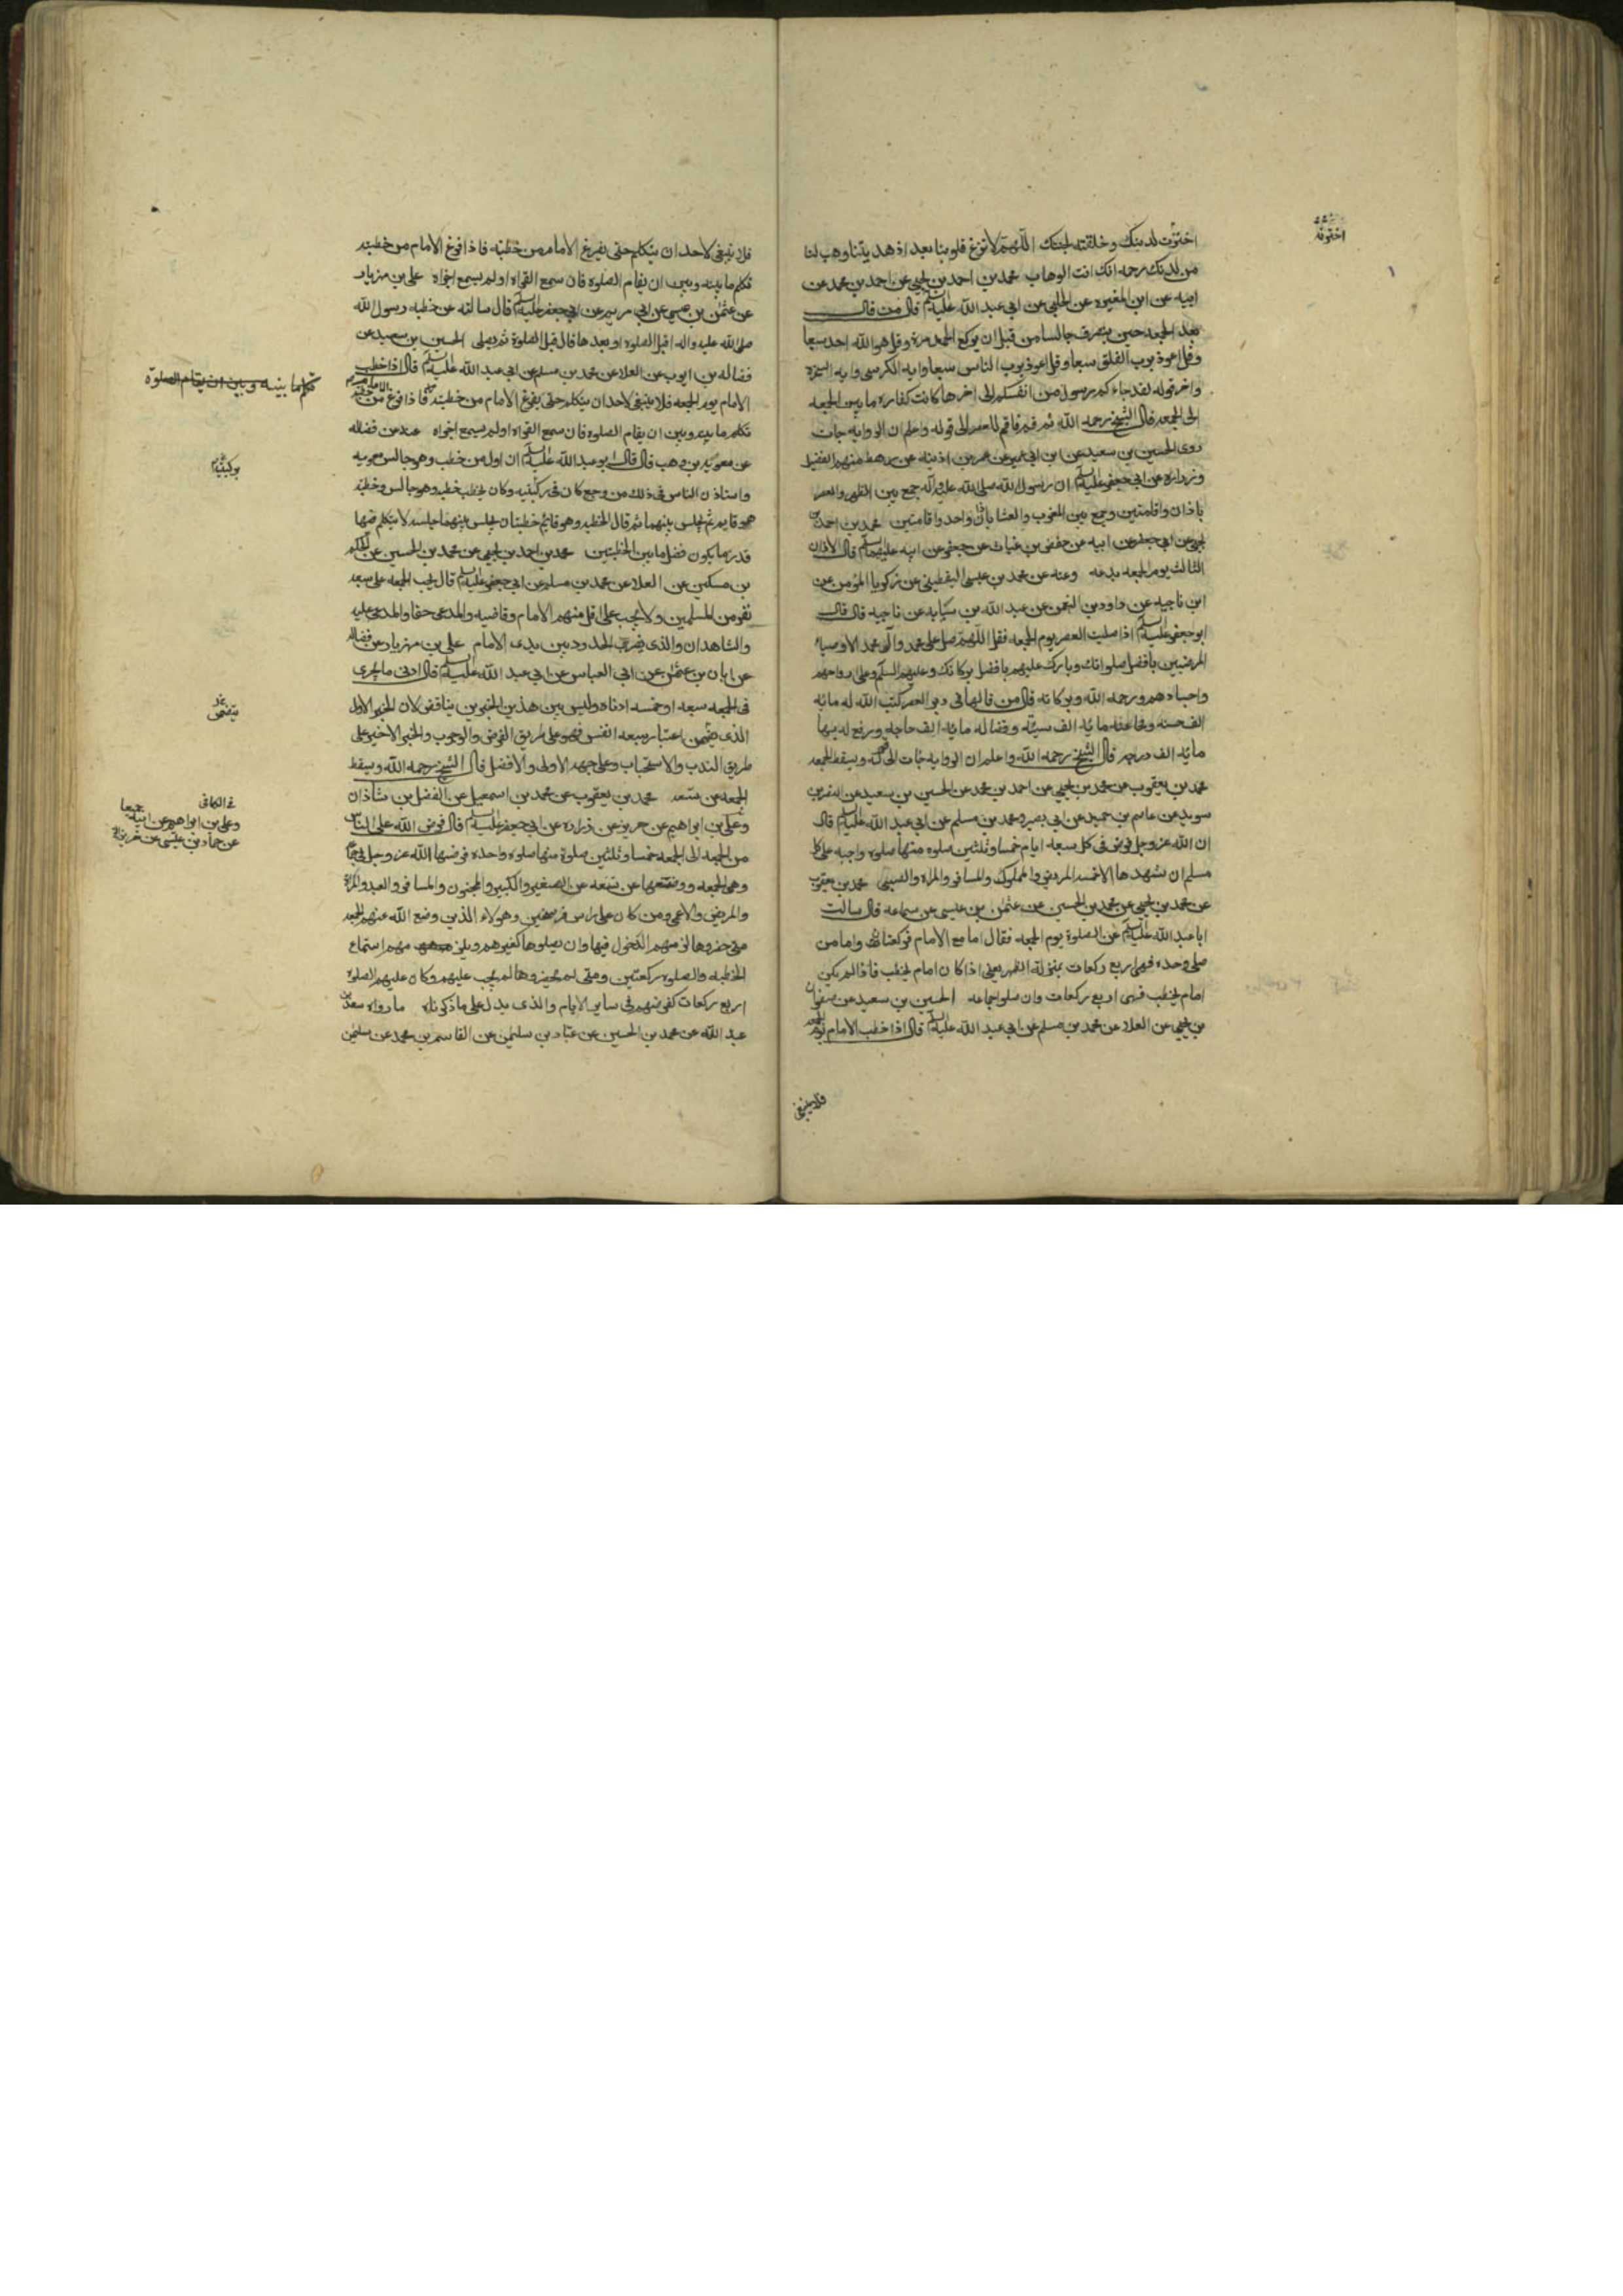 اخترت لدينك وخلقته لجنتك اللهم لا تزغ قلوبنا بعد اذ هديتنا وهب لنا
من لدنك رحمه انك انت الوهاب محمد بن احمد بن يحيى عن احمد بن محمد عن
ابيه عن ابن المغيره عن الحلبي عن ابي عبد الله عليه السلم قال من قال
بعد الجمعه حين ينصرف جالسا من قبل ان يركع الحمد مرة وقل هو الله احد سبعا
وقل اعوذ برب الفلق سبعا وقل اعوذ برب الناس سبعا وايه الكرسي وايه السخره
واخر قوله لقد جاءكم رسول من انفسكم الى اخرها كانت كفاره ما بين الجمعه
الى الجمعه قال الشيخ رحمه الله ثم قم فاقم للعصر الى قوله واعلم ان الروايه جات
روى الحسين بن سعيد عن ابن ابي عمير عن عمر بن اذينه عن رهط منهم الفضيل
وزراره عن ابي جعفر عليه السلم ان رسول الله صلى الله عليه واله جمع بين الظهر والعصر
باذان واقامتين وجمع بين المغرب والعشا باذان واحد واقامتين محمد بن احمد بن
يحيى عن ابي جعفر عن ابيه عن حفص بن غياث عن جعفر عن ابيه عليهما السلم قال الاذان
الثالث يوم الجمعه بدعه وعنه عن محمد بن عيسى اليقطيني عن زكريا المؤمن عن
ابن ناجيه عن داود بن النعمن عن عبد الله بن سيابه عن ناجيه قال قال
ابو جعفر عليه السلم اذا صليت العصر يوم الجمعه فقل اللهم صل على محمد وآل محمد الاوصياء
المرضيين بافضل صلواتك وبارك عليهم بافضل بركاتك وعليهم السلم وعلى ارواحهم
واجسادهم ورحمه الله وبركاته قال من قالها في دبر العصر كتب الله له مائه
الف حسنه ومحا عنه مائه الف سيئه وقضا له مائه الف حاجه ورفع له بها
مائه الف درجه قال الشيخ رحمه الله واعلم ان الروايه جات الى قوله ويسقط الجمعه
محمد بن يعقوب عن محمد بن يحيى عن احمد بن محمد عن الحسين بن سعيد عن النضر بن
سويد عن عاصم بن حميد عن ابي بصير ومحمد بن مسلم عن ابي عبد الله عليه السلم قال
ان الله عز وجل فرض في كل سبعه ايام خمسا وثلثين صلوه منها صلوه واجبه على كل
مسلم ان يشهدها الا خمسه المريض والمملوك والمسافر والمراه والصبي محمد بن يعقوب
عن محمد بن يحيى عن محمد بن الحسين عن عثمن بن عيسى عن سماعه قال سالت
ابا عبد الله عليه السلم عن الصلوة يوم الجمعه فقال اما مع الامام فركعتان واما من
صلى وحده فهى اربع ركعات بمنزلة الظهر يعنى اذا كان امام يخطب فاذا لم يكن
امام يخطب فهى اربع ركعات وان صلوا جماعه الحسين بن سعيد عن صفوان
بن يحيى عن العلا عن محمد بن مسلم عن ابي عبد الله عليه السلم قال اذا خطب الامام يوم الجمعه
فلا ينبغى
اخترته
فلا ينبغى لاحد ان يتكلم حتى يفرغ الامام من خطبته فاذا فرغ الامام من خطبته
تكلم ما بينه وبين ان يقام الصلوه فان سمع القراه او لم يسمع اجزاه على بن مهزيار
عن عثمن بن عيسى عن ابي مريم عن ابي جعفر عليه السلم قال سالته عن خطبه رسول الله
صلى الله عليه واله اقبل الصلوه او بعدها قال قبل الصلوة ثم يصلى الحسين بن سعيد عن
فضاله بن ايوب عن العلا عن محمد بن مسلم عن ابي عبد الله عليه السلم قال اذا خطب
الامام يوم الجمعه فلا ينبغى لاحد ان يتكلم حتى يفرغ الامام من خطبته فاذا فرغ من
تكلم ما بينه وبين ان يقام الصلوه فان سمع القراه او لم يسمع اجزاه عنه عن فضاله
عن معويه بن وهب قال قال ابو عبد الله عليه السلم ان اول من خطب وهو جالس معويه
واستاذن الناس في ذلك من وجع كان في ركبتيه وكان يخطب خطبه وهو جالس وخطبه
هو قايم ثم يجلس بينهما ثم قال الخطبه وهو قايم خطبتان يجلس بينهما جلسه لا يتكلم فيها
قدر ما يكون فصل ما بين الخطبتين محمد بن احمد بن يحيى عن محمد بن الحسين عن الحكم
بن مسكين عن العلا عن محمد بن مسلم عن ابي جعفر عليه السلم قال يجب الجمعه على سبعه
نفر من المسلمين ولا يجب على اقل منهم الامام وقاضيه والمدعى حقا والمدعى عليه
والشاهدان والذى يضرب الحدود بين يدى الامام على بن مهزيار عن فضاله
عن ابان بن عثمن عن ابي العباس عن ابي عبد الله عليه السلم قال ادنى ما يجزى
في الجمعه سبعه او خمسه ادناه وليس بين هذين الخبرين يناقض لان الخبر الاول
الذى يتضمن اعتبار سبعه انفس فهو على طريق الفرض والوجوب والخبر الاخير على
طريق الندب والاستحباب وعلى جهه الاولى والافضل قال الشيخ رحمه الله ويسقط
الجمعه عن تسعه محمد بن يعقوب عن محمد بن اسمعيل عن الفضل بن شاذان
وعلى بن ابراهيم عن حريز عن زراره عن ابي جعفر عليه السلم قال فرض الله على الناس
من الجمعه الى الجمعه خمسا وثلثين صلوة منها صلوه واحده فرضها الله عز وجل في جماعه
وهى الجمعه ووضعها عن تسعه عن الصغير والكبير والمجنون والمسافر والعبد والمراه
والمريض والاعمى ومن كان على راس فرسخين وهولاء الذين وضع الله عنهم الجمعه
متى حضروها لزمهم الدخول فيها وان يصلوها كغيرهم ويلزمهم استماع
الخطبه والصلوه ركعتين ومتى لم يحضروها لم يجب عليهم وكان عليهم الصلوه
اربع ركعات كفرضهم في ساير الايام والذى يدل على ما ذكرناه ما رواه سعد بن
عبد الله عن محمد بن الحسين عن عباد بن سليمن عن القاسم بن محمد عن سليمن
تكلم ما بينه وبين ان يقام الصلوة
ركبتيه
يتضمن
في الكافي
وعلى بن ابراهيم عن ابيه جميعا
عن حماد بن عيسى عن حريز